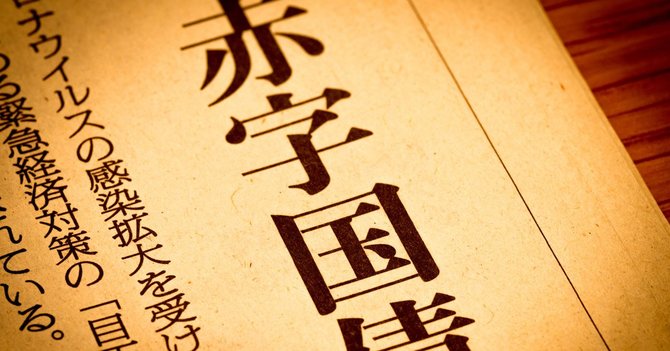 赤字国債
ロナウイルスの感染拡大を受け
める緊急経済対策の「目玉
れている。